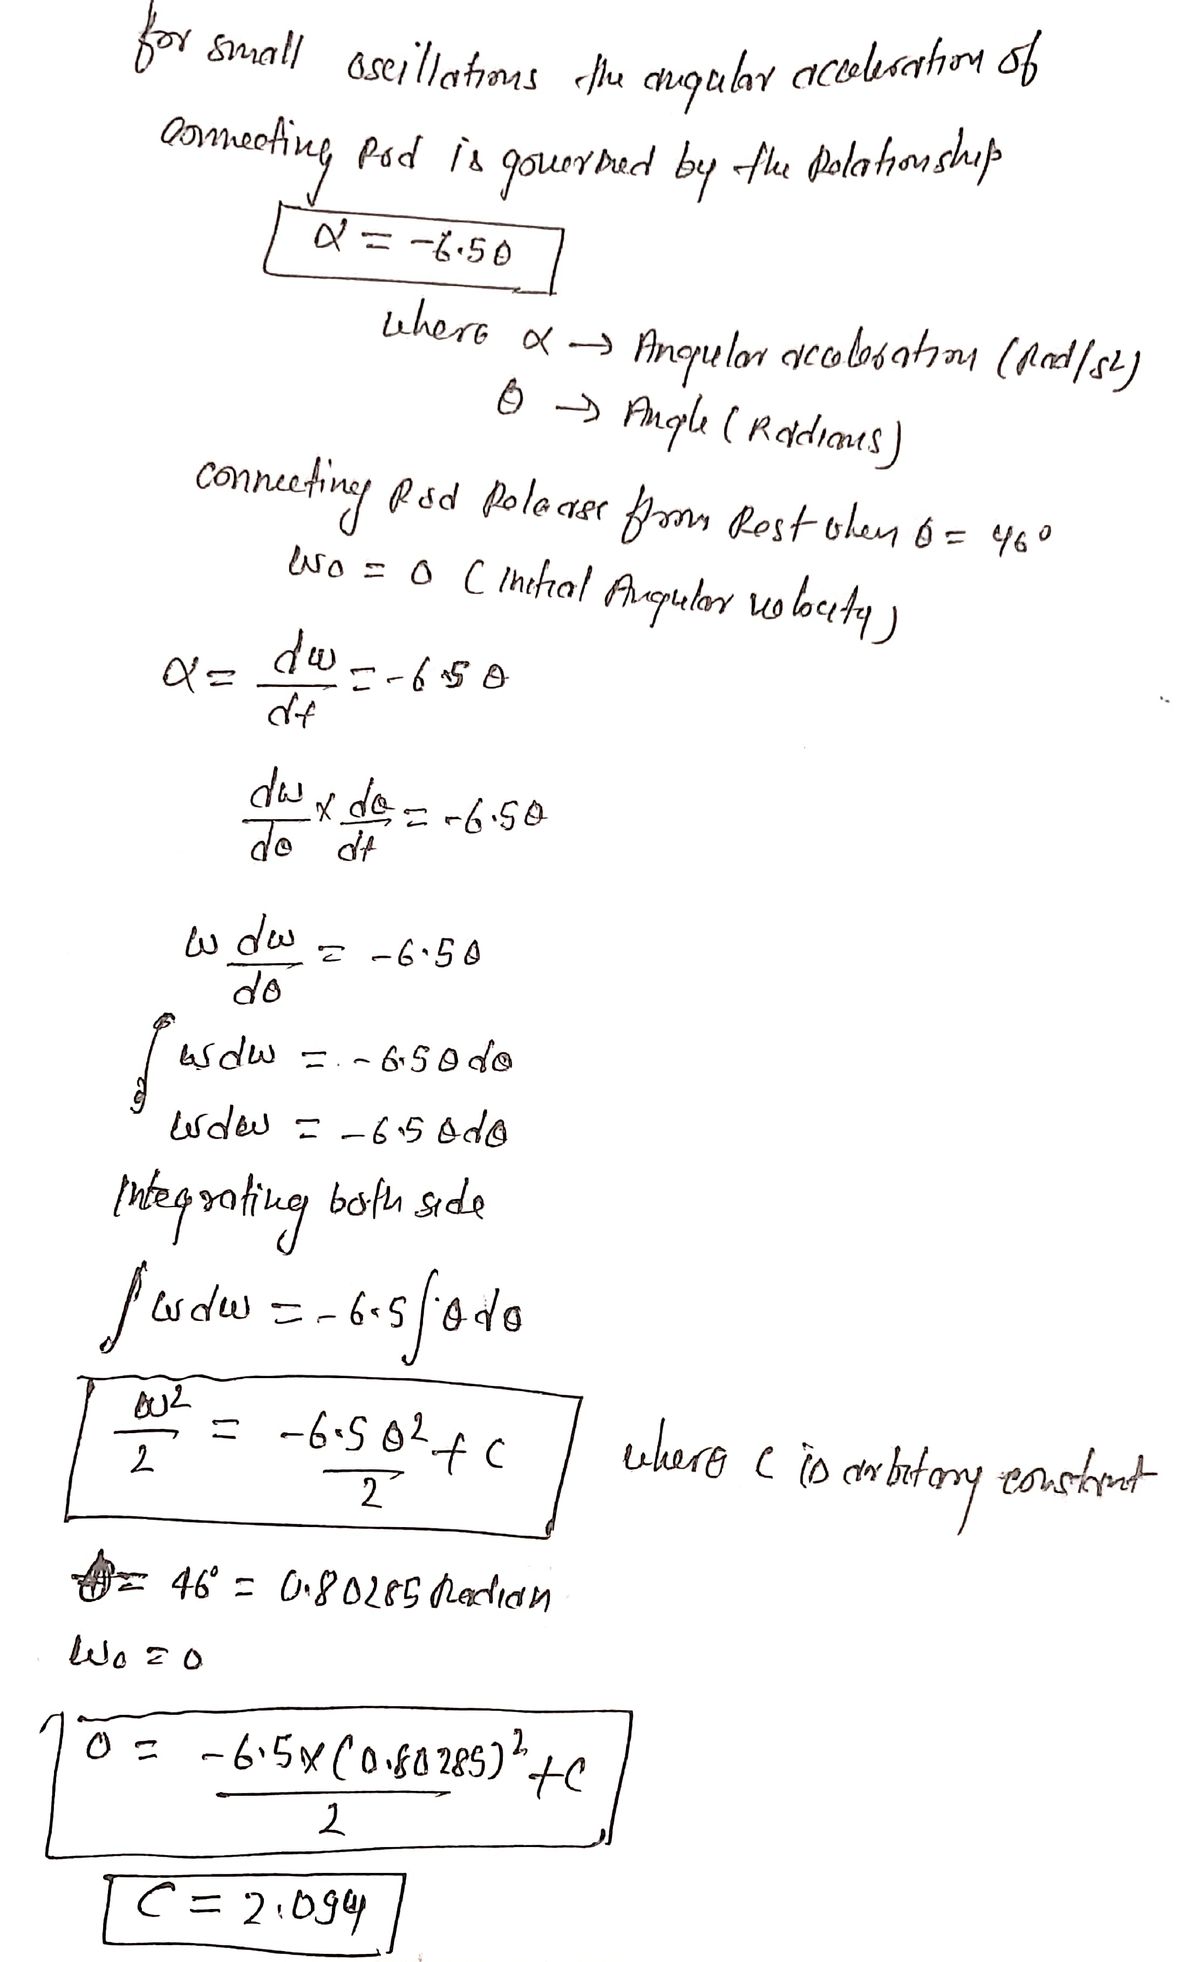 for small oscillations the angular acceleration of
connecting Rod is governed by the Relationship
α = -6.5θ
where α → Angular acceleration (Rad/s2)
θ → Angle (Radians)
connecting Rod Release from Rest when θ = 46°
ω0 = 0 (initial Angular velocity)
α = dω/dt = -6.5 θ
dω/dθ × dθ/dt = -6.5θ
ω dω/dθ = -6.5θ
∫ ω dω = -6.5 θ dθ
ω dω = -6.5 θ dθ
Integrating both side
∫ ω dω = -6.5 ∫ θ dθ
ω²/2 = -6.5 θ²/2 + C where C is arbitary constant
θ = 46° = 0.80285 Radian
ω0 = 0
0 = -6.5 × (0.80285)²/2 + C
C = 2.094